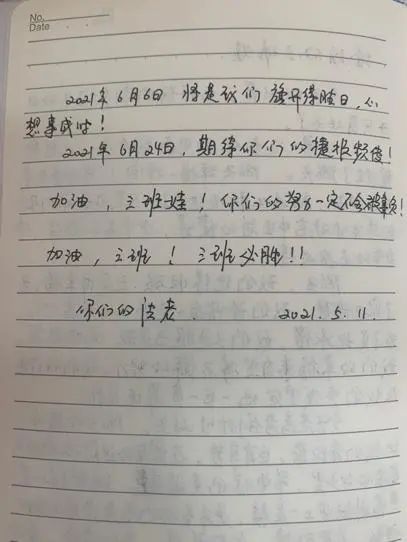 No.
Date
2021年6月6日 将是我们旗开得胜日,心
想事成时!
2021年6月24日,期待你们的捷报频传!
加油,三班娃!你们的努力一定不会被辜负!
加油,三班!三班必胜!!
你们的 老 2021.5.11.